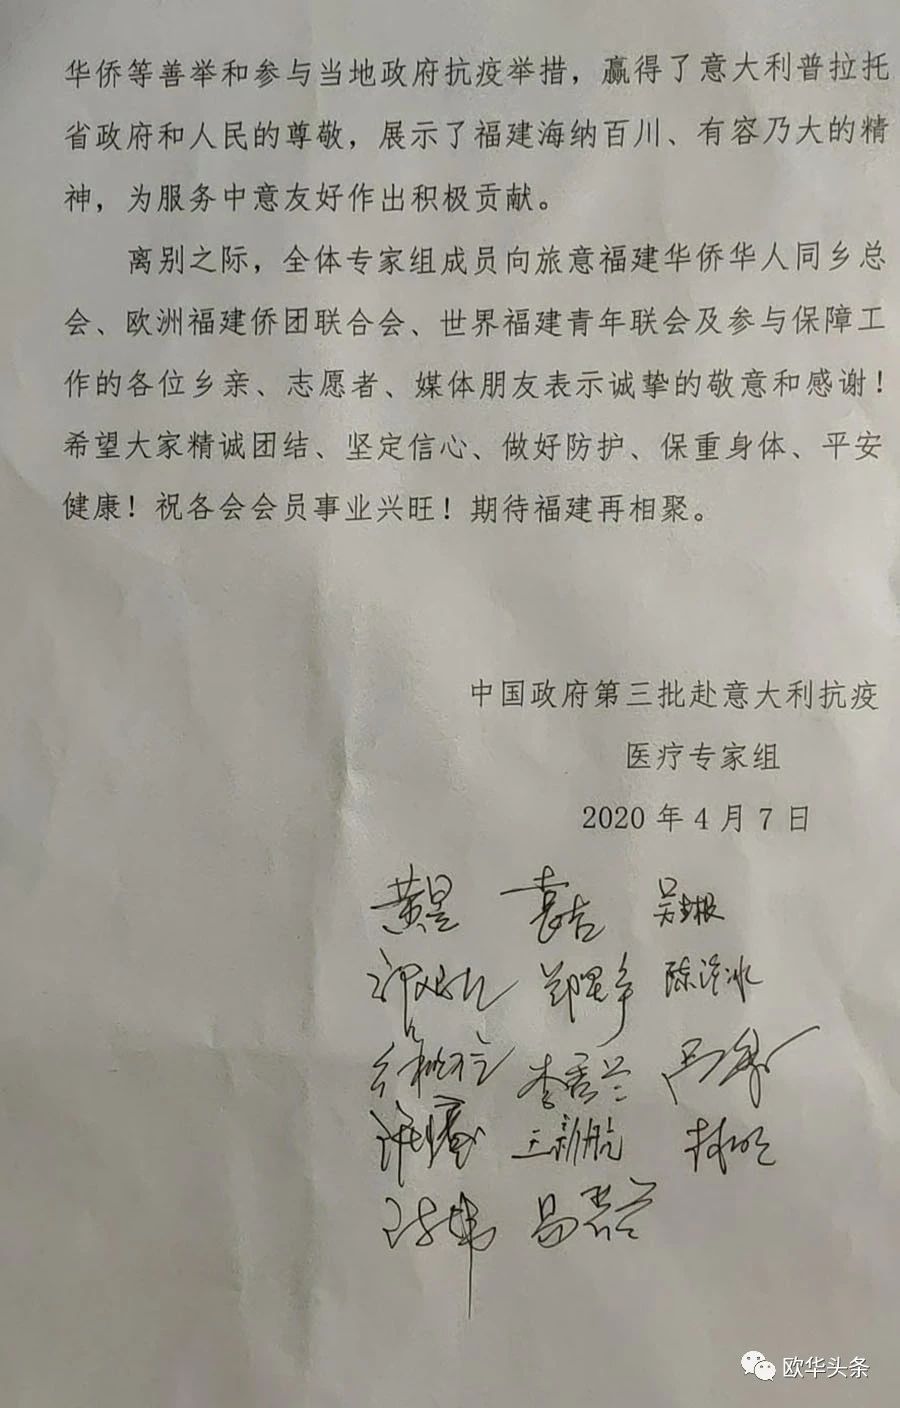 华侨等善举和参与当地政府抗疫举措，赢得了意大利普拉托
省政府和人民的尊敬，展示了福建海纳百川、有容乃大的精
神，为服务中意友好作出积极贡献。
离别之际，全体专家组成员向旅意福建华侨华人同乡总
会、欧洲福建侨团联合会、世界福建青年联会及参与保障工
作的各位乡亲、志愿者、媒体朋友表示诚挚的敬意和感谢！
希望大家精诚团结、坚定信心、做好防护、保重身体、平安
健康！祝各会会员事业兴旺！期待福建再相聚。
中国政府第三批赴意大利抗疫
医疗专家组
2020 年 4 月 7 日
黄昱
陈浴冰
李秀兰
王新航
欧华头条